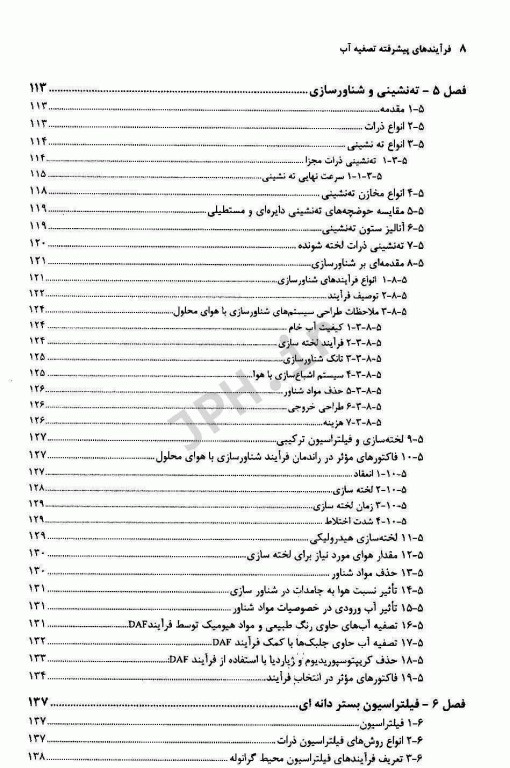 ۸ فرآیندهای پیشرفته تصفیه آب
فصل ۵ - ته‌نشینی و شناورسازی ........ ۱۱۳
۵-۱ مقدمه ........ ۱۱۳
۵-۲ انواع ذرات ........ ۱۱۳
۵-۳ انواع ته نشینی ........ ۱۱۴
۵-۳-۱ ته‌نشینی ذرات مجزا ........ ۱۱۴
۵-۳-۱-۱ سرعت نهایی ته نشینی ........ ۱۱۵
۵-۴ انواع مخازن ته‌نشینی ........ ۱۱۸
۵-۵ مقایسه حوضچه‌های ته‌نشینی دایره‌ای و مستطیلی ........ ۱۱۹
۵-۶ آنالیز ستون ته‌نشینی ........ ۱۱۹
۵-۷ ته‌نشینی ذرات لخته شونده ........ ۱۲۰
۵-۸ مقدمه‌ای بر شناورسازی ........ ۱۲۱
۵-۸-۱ انواع فرآیندهای شناورسازی ........ ۱۲۱
۵-۸-۲ توصیف فرآیند ........ ۱۲۲
۵-۸-۳ ملاحظات طراحی سیستم‌های شناورسازی با هوای محلول ........ ۱۲۴
۵-۸-۳-۱ کیفیت آب خام ........ ۱۲۴
۵-۸-۳-۲ فرآیند لخته سازی ........ ۱۲۴
۵-۸-۳-۳ تانک شناورسازی ........ ۱۲۵
۵-۸-۳-۴ سیستم اشباع‌سازی با هوا ........ ۱۲۵
۵-۸-۳-۵ حذف مواد شناور ........ ۱۲۶
۵-۸-۳-۶ طراحی خروجی ........ ۱۲۶
۵-۸-۳-۷ هزینه ........ ۱۲۶
۵-۹ لخته‌سازی و فیلتراسیون ترکیبی ........ ۱۲۷
۵-۱۰ فاکتورهای مؤثر در راندمان فرآیند شناورسازی با هوای محلول ........ ۱۲۷
۵-۱۰-۱ انعقاد ........ ۱۲۷
۵-۱۰-۲ لخته سازی ........ ۱۲۸
۵-۱۰-۳ زمان لخته سازی ........ ۱۲۹
۵-۱۰-۴ شدت اختلاط ........ ۱۲۹
۵-۱۱ لخته‌سازی هیدرولیکی ........ ۱۲۹
۵-۱۲ مقدار هوای مورد نیاز برای لخته سازی ........ ۱۳۰
۵-۱۳ حذف مواد شناور ........ ۱۳۰
۵-۱۴ تأثیر نسبت هوا به جامدات در شناور سازی ........ ۱۳۱
۵-۱۵ تأثیر آب ورودی در خصوصیات مواد شناور ........ ۱۳۱
۵-۱۶ تصفیه آب‌های حاوی رنگ طبیعی و مواد هیومیک توسط فرآیند DAF ........ ۱۳۱
۵-۱۷ تصفیه آب حاوی جلبک‌ها با کمک فرآیند DAF ........ ۱۳۲
۵-۱۸ حذف کریپتوسپوریدیوم و ژیاردیا با استفاده از فرآیند DAF: ........ ۱۳۳
۵-۱۹ فاکتورهای مؤثر در انتخاب فرآیند ........ ۱۳۴
فصل ۶ - فیلتراسیون بستر دانه ای ........ ۱۳۷
۶-۱ فیلتراسیون ........ ۱۳۷
۶-۲ انواع روش‌های فیلتراسیون ذرات ........ ۱۳۷
۶-۳ تعریف فرآیندهای فیلتراسیون محیط گرانوله ........ ۱۳۸
JPH.ir